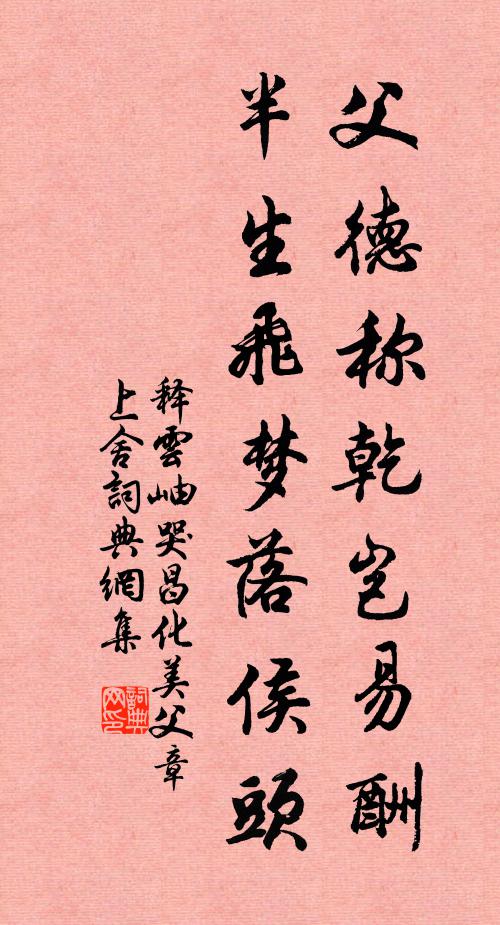 父德称乾岂易酬
半生飛梦落侯頭
释雲岫哭昌化美父章
上舍詞典網集
詞典网印